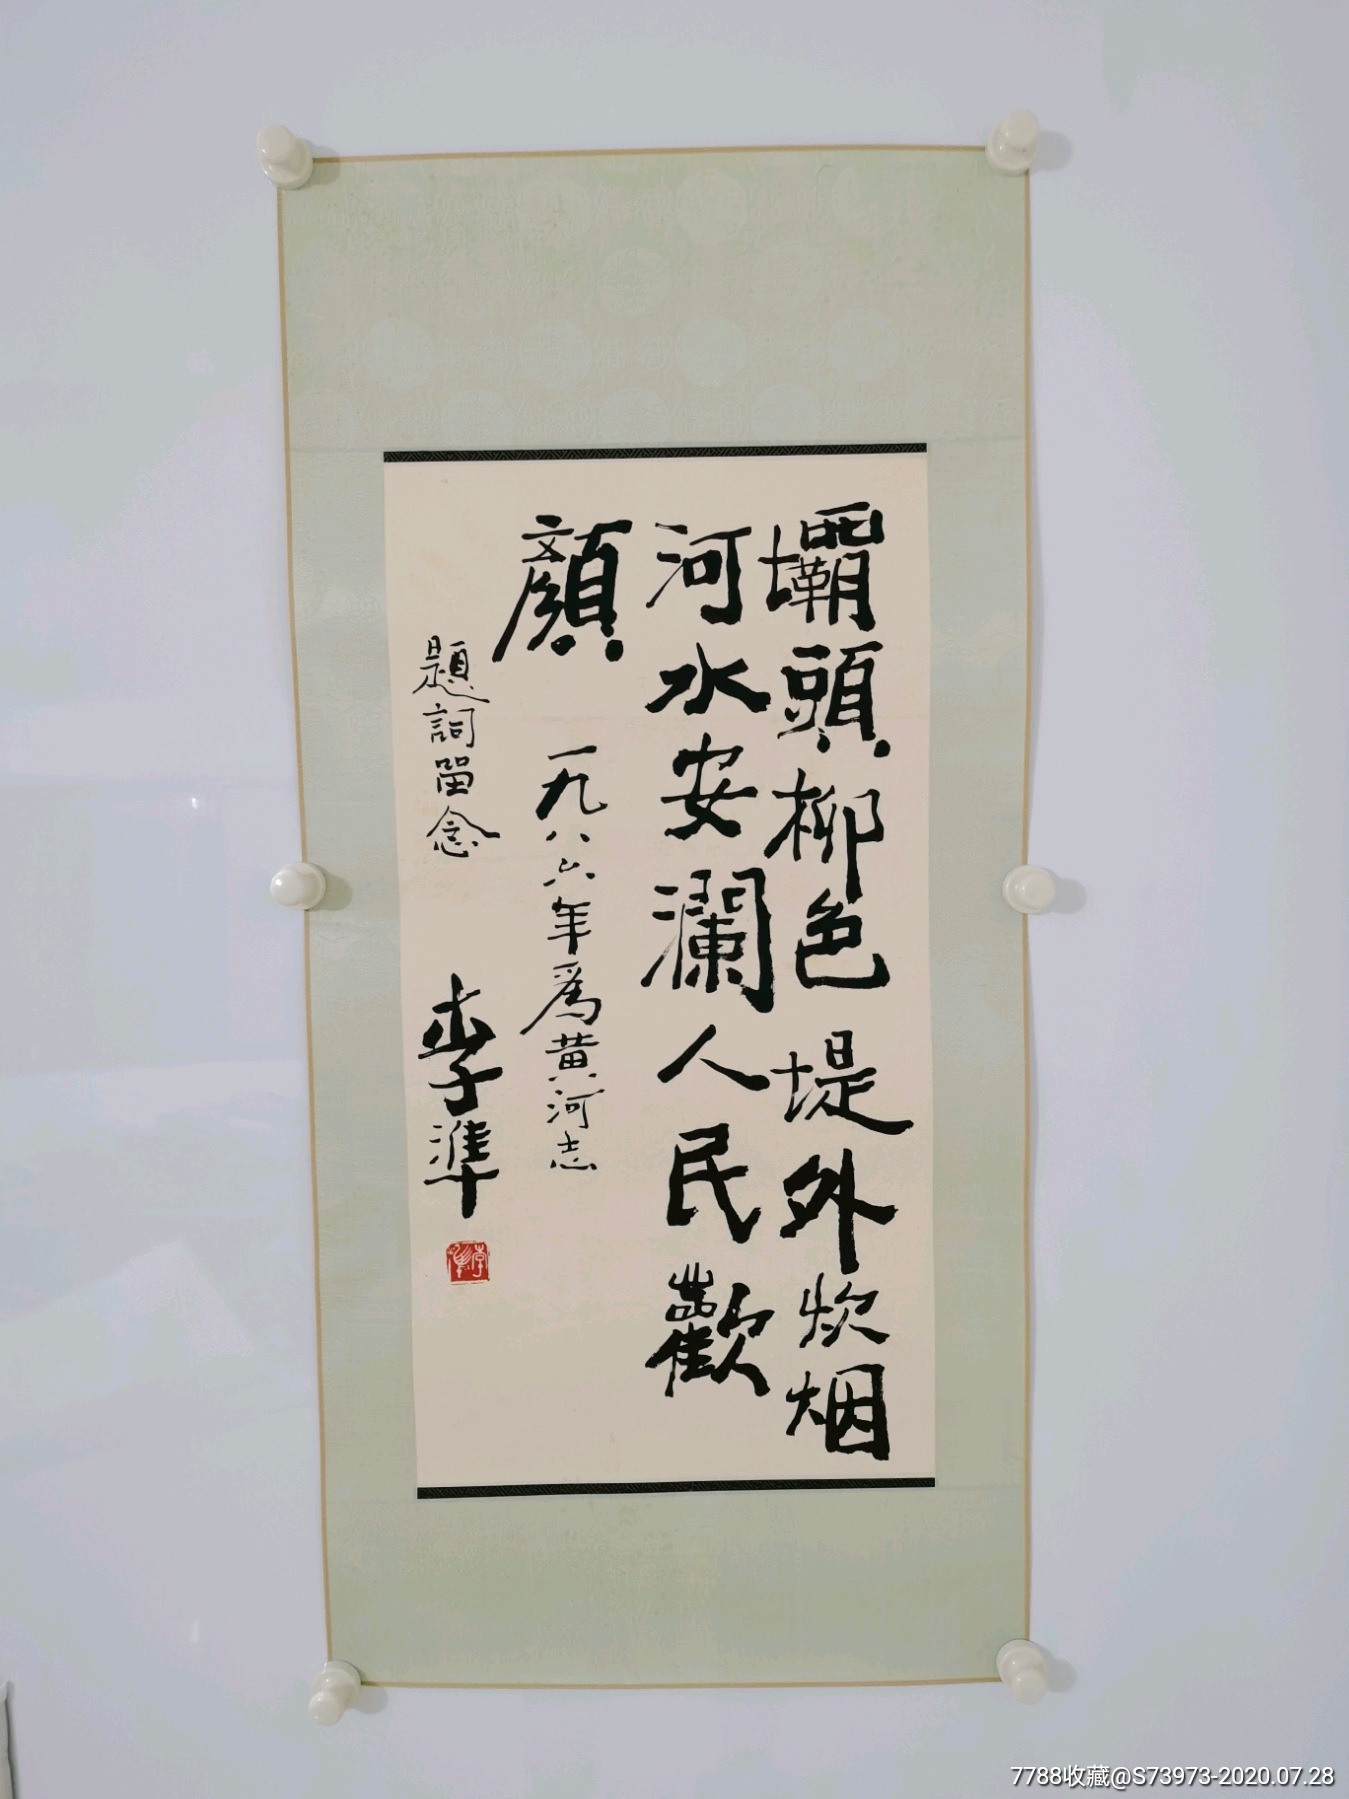 壩頭柳色堤外炊烟
河水安瀾人民歡
顏
一九八六年爲黄河志
題詞留念
李準
李準
7788收藏@S73973-2020.07.28